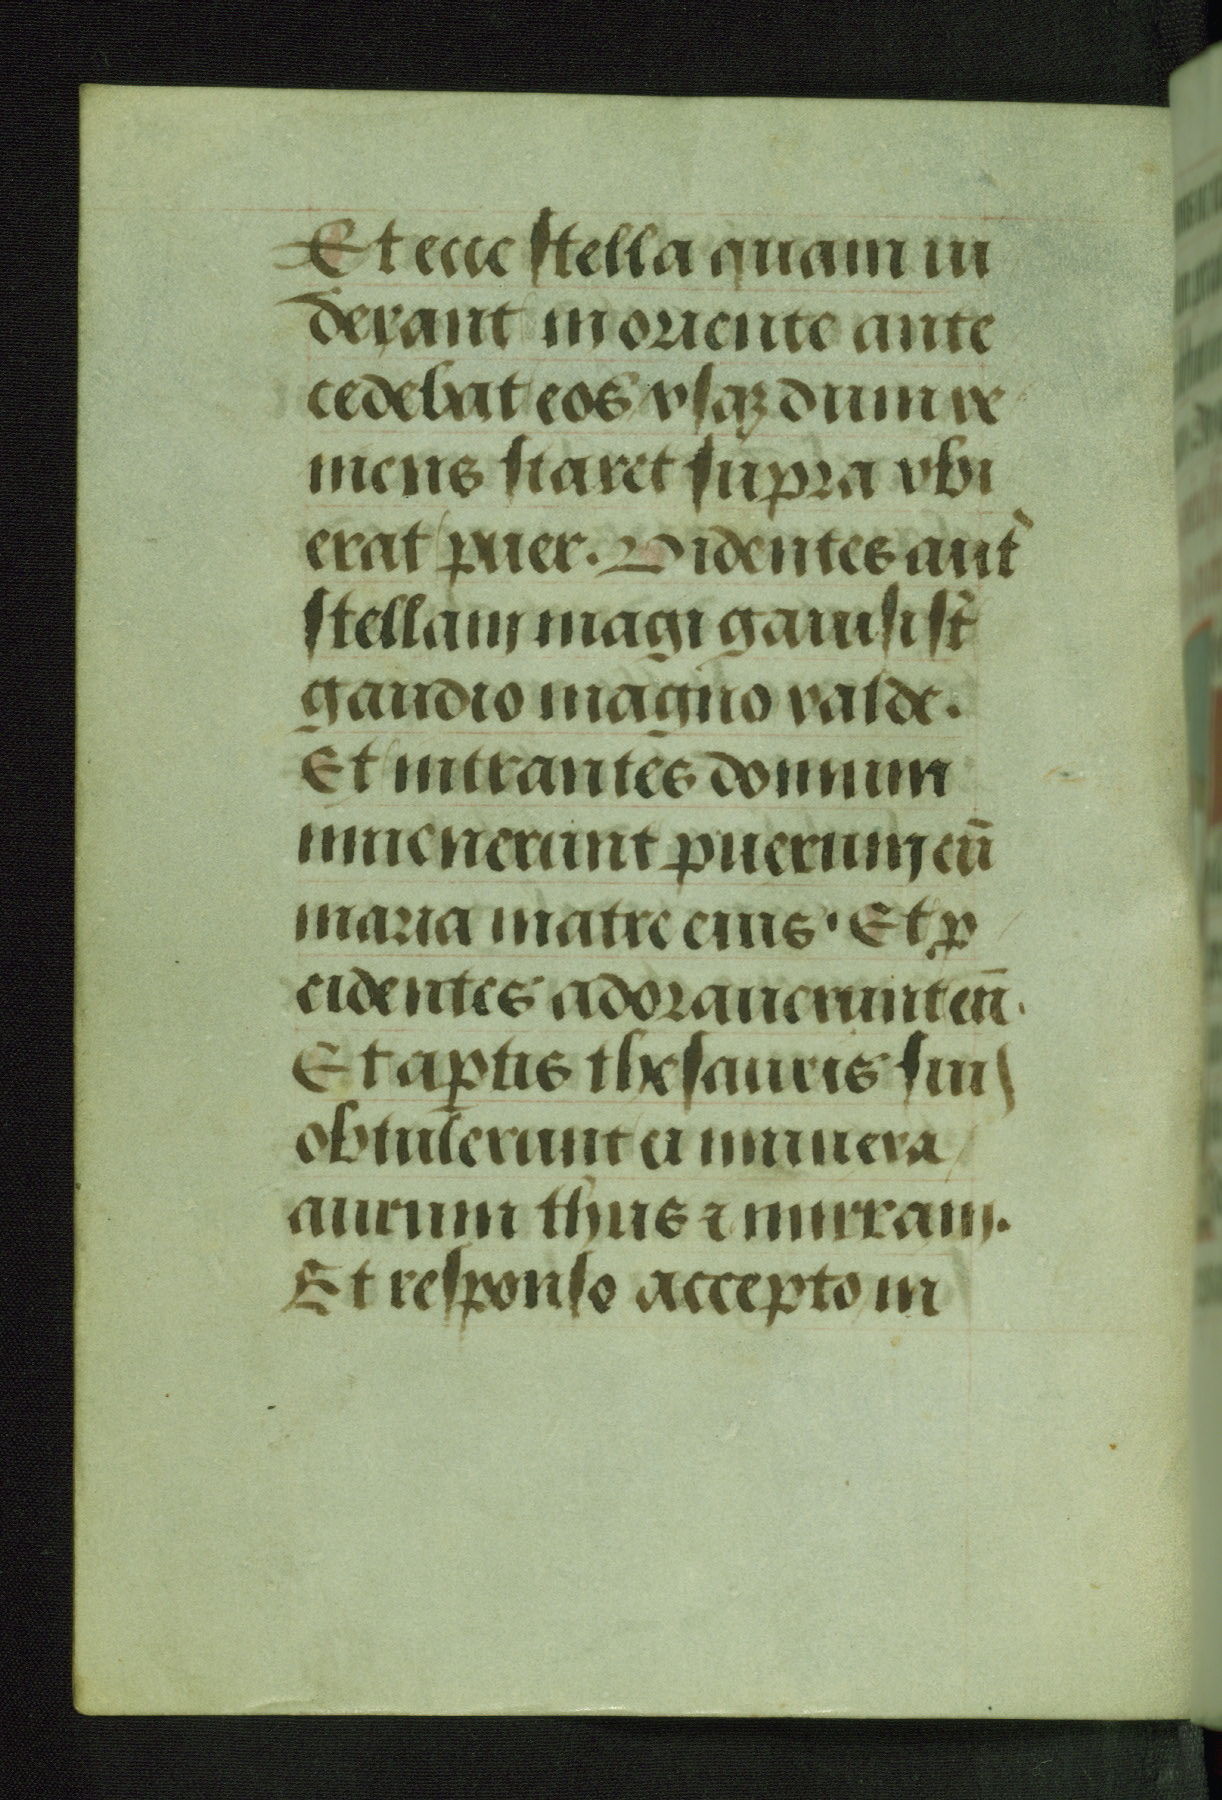 Et ecce stella quam ui
derant in oriente ante
cedebat eos vsqꝫ dum ve
niens staret supra vbi
erat puer. Videntes aut̃
stellam magi gauisi st̃
gaudio magno valde.
Et intrantes domum
inuenerunt puerum cū
maria matre eius. Et ꝓ
cidentes adorauerunt eū.
Et aꝑtis thesauris suis
obtulerunt ei munera
aurum thus ⁊ mirram.
Et responso accepto in